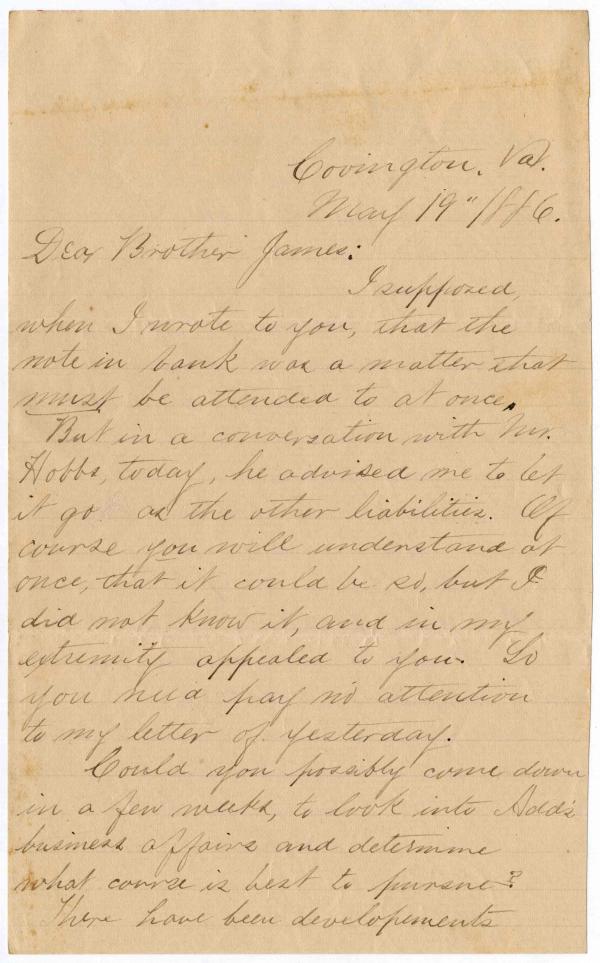 Covington, Va.
May 19" 1886.
Dear Brother James:
I supposed,
when I wrote to you, that the
note in bank was a matter that
must be attended to at once.
But in a conversation with Mr.
Hobbs, today, he advised me to let
it go as the other liabilities. Of
course you will understand at
once, that it could be so, but I
did not know it, and in my
extremity appealed to you. So
you need pay no attention
to my letter of yesterday.
Could you possibly come down
in a few weeks, to look into Add's
business affairs and determine
what course is best to pursue?
There have been developements